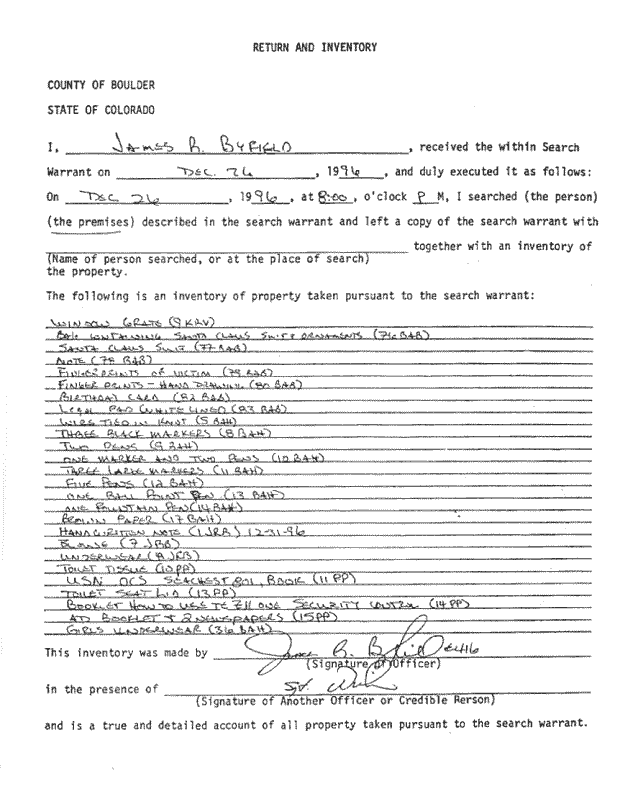 RETURN AND INVENTORY
COUNTY OF BOULDER
STATE OF COLORADO
I, JAMES R. BYFIELD, received the within Search
Warrant on DEC. 26, 1996, and duly executed it as follows:
On DEC 26, 1996, at 8:00, o'clock P M, I searched (the person)
(the premises) described in the search warrant and left a copy of the search warrant with
together with an inventory of
(Name of person searched, or at the place of search)
the property.
The following is an inventory of property taken pursuant to the search warrant:
WINDOW GRATE (9KKV)
CONTAINING SANTA CLAUS SUIT ORNAMENTS (76BAB)
SANTA CLAUS SUIT (77BAB)
NOTE (78 BAB)
FINGERPRINTS OF VICTIM (79 BAB)
FINGER PRINTS - HAND DRAWN (80 BAB)
BIRTHDAY CARD (82 BAB)
LEGAL PAD WHITE LINED (83 BAB)
WIRE TIED IN KNOT (5 BAH)
THREE BLACK MARKERS (8 BAH)
TWO PENS (9 BAH)
ONE MARKER AND TWO PENS (10 BAH)
THREE LARGE MARKERS (11 BAH)
FIVE PENS (12 BAH)
ONE BALL POINT PEN (13 BAH)
ONE FOUNTAIN PEN (14 BAH)
BROWN PAPER (17 BAH)
NOTE (1JRB) 12-31-96
BLOUSE (7 JRB)
UNDERWEAR (8 JRB)
TOILET TISSUE (10PP)
USN OCS SEACHEST 801, BOOK (11 PP)
TOILET SEAT LID (13PP)
BOOKLET HOW TO USE SECURITY CONTROL (14PP)
AD BOOKLET + 2 NEWSPAPERS (15PP)
GIRLS UNDERWEAR (36 BAH)
This inventory was made by James R. Byfield
(Signature of Officer)
in the presence of Sgt.
(Signature of Another Officer or Credible Person)
and is a true and detailed account of all property taken pursuant to the search warrant.